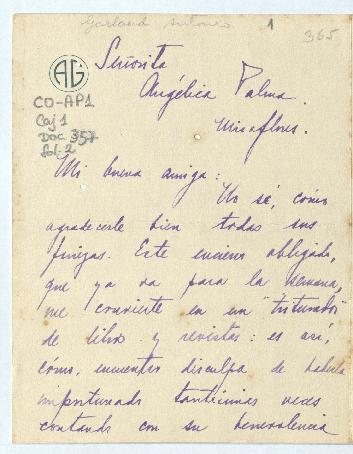 Garland Antonio
1
365
AG
Señorita
Angélica Palma.
Miraflores.
CO-AP1
Caj 1
Doc. 357
Fol. 2
Mi buena amiga:
No sé, cómo
agradecerle bien todas sus
finezas. Este encierro obligado,
que ya va para la semana,
me convierte en un "triturador"
de libros y revistas: es así,
cómo, encuentro disculpa de haberla
importunado tantísimas veces
contando con su benevolencia